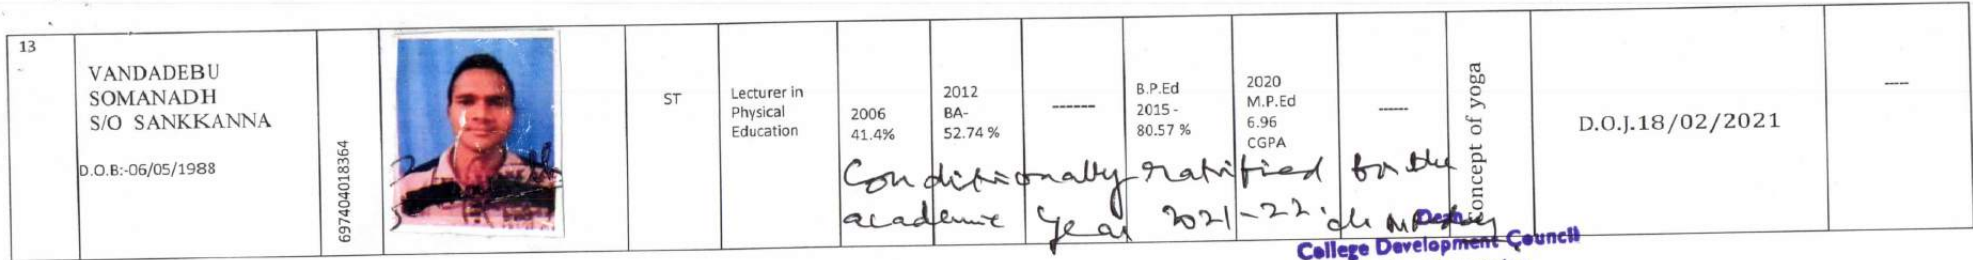 13
VANDADEBU
SOMANADH
S/O SANKKANNA
D.O.B:-06/05/1988
697404018364
ST
Lecturer in
Physical
Education
2006
41.4%
2012
BA-
52.74 %
------
B.P.Ed
2015 -
80.57 %
2020
M.P.Ed
6.96
CGPA
------
Concept of yoga
D.O.J.18/02/2021
----
Conditionally ratified for the
academic year 2021-22
Dean
College Development Council